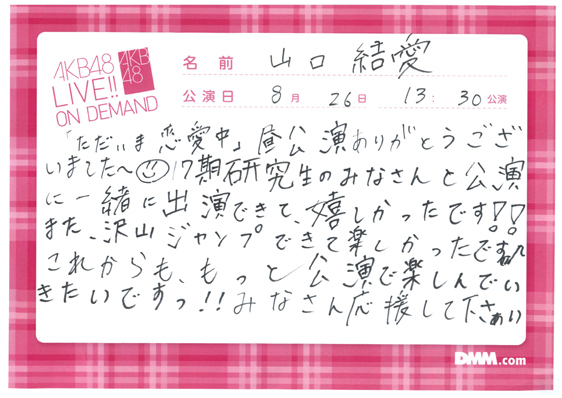 AKB48
LIVE!!
ON DEMAND
AKB
48
名前 山口 結愛
公演日 8月 26日 13:30公演
「ただいま 恋愛中」昼公演ありがとうござ
いました〜 17期研究生のみなさんと公演
に一緒に出演できて、嬉しかったです!!
また、沢山ジャンプできて楽しかったです
これからも、もっと公演で楽しんでい
きたいですっ!!みなさん応援して下さぁい
DMM.com